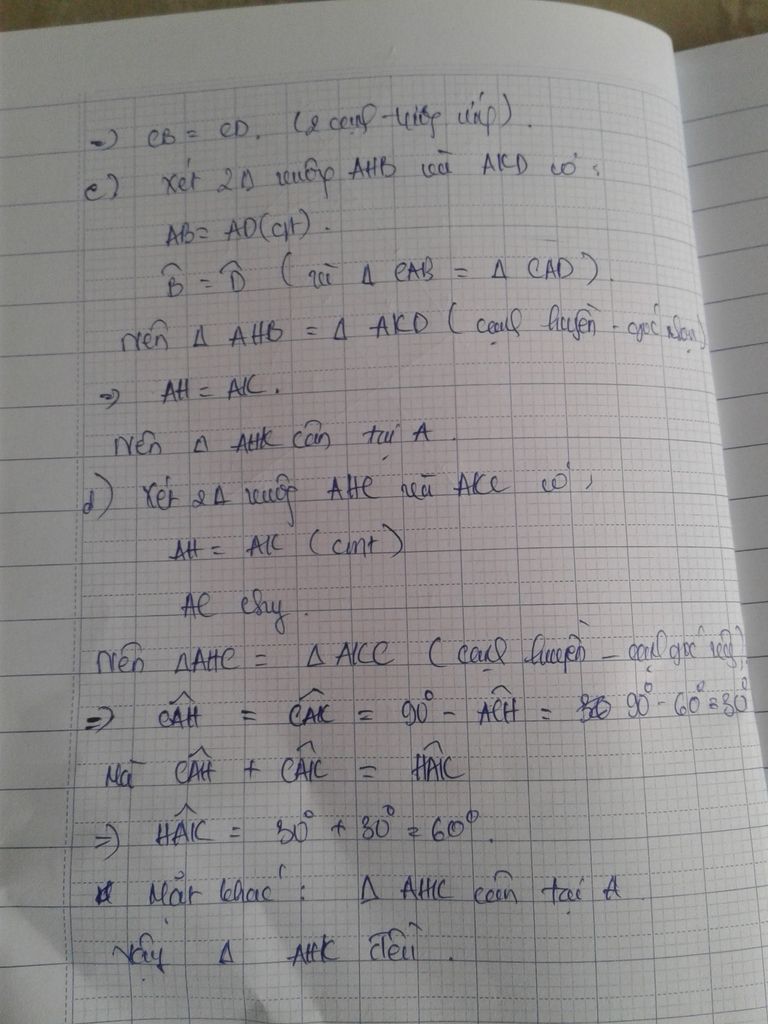 => CB = CD. (2 cạnh tương ứng).
c) Xét 2Δ vuông AHB và AKD có:
AB = AD (cmt).
B̂ = D̂ (vì Δ CAB = Δ CAD).
Nên Δ AHB = Δ AKD (cạnh huyền - góc nhọn)
=> AH = AK.
Nên Δ AHK cân tại A.
d) Xét 2Δ vuông AHC và AKC có:
AH = AK (cmt)
AC chung.
Nên ΔAHC = Δ AKC (cạnh huyền - cạnh góc vuông)
=> CÂH = CÂK = 90° - AĈH = 90° - 60° = 30°
Mà CÂH + CÂK = HÂK
=> HÂK = 30° + 30° = 60°.
Mặt khác: Δ AHK cân tại A
Vậy Δ AHK đều.